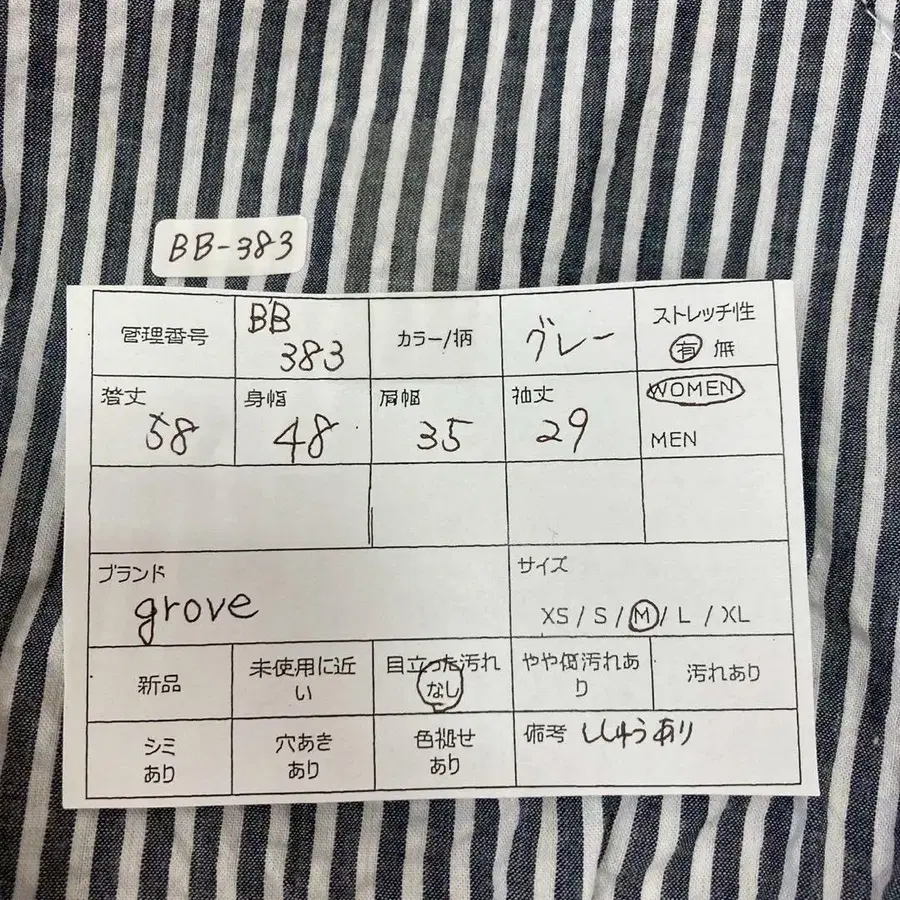 BB-383
管理番号
BB
383
カラー/柄
グレー
ストレッチ性
有 無
着丈
58
身幅
48
肩幅
35
袖丈
29
WOMEN
MEN
ブランド
grove
サイズ
XS / S / M / L / XL
新品
未使用に近
い
目立った汚れ
なし
やや傷汚れあ
り
汚れあり
シミ
あり
穴あき
あり
色褪せ
あり
備考 ししゅうあり